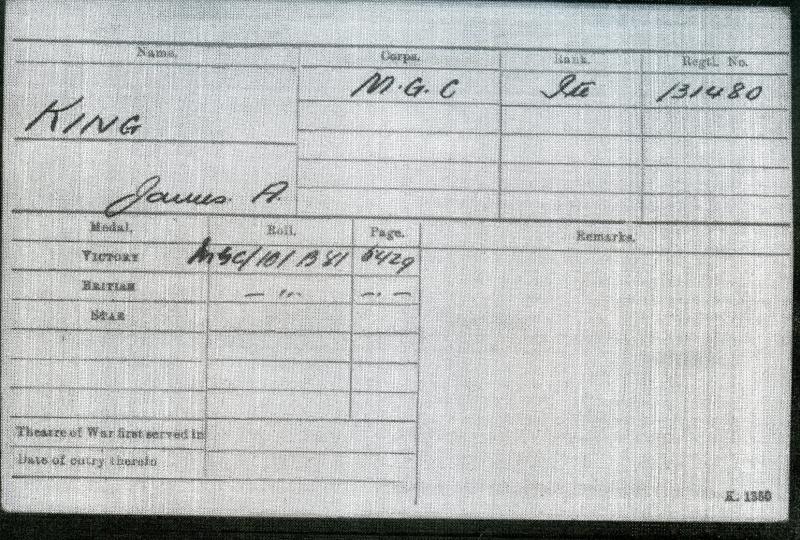 Name. Corps. Rank. Regtl. No.
M.G.C Pte 131480
KING
James. A.
Medal. Roll. Page. Remarks.
VICTORY MGC/101 B81 5429
BRITISH — "" — . —
STAR
Theatre of War first served in
Date of entry therein
K. 1380